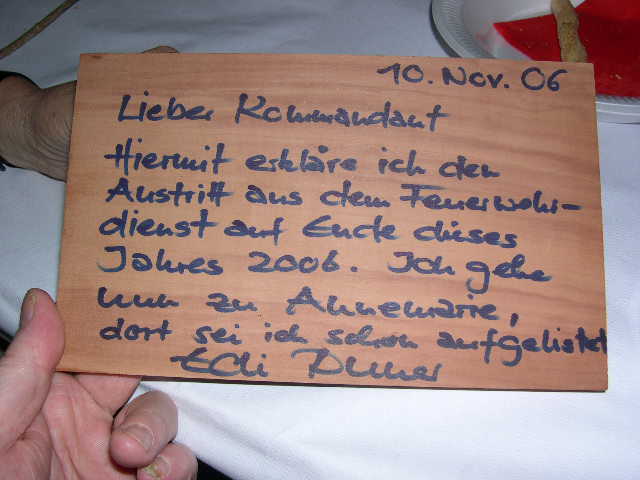 10. Nov. 06
Lieber Kommandant
Hiermit erkläre ich den
Austritt aus dem Feuerwehr-
dienst auf Ende dieses
Jahres 2006. Ich gehe
nun zu Annemarie,
dort sei ich schon aufgelistet
Edi